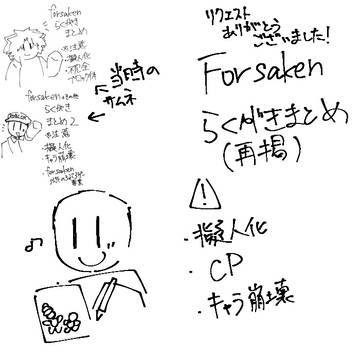 forsaken
らくがき
まとめ
※注意
・擬人化
forsaken
らくがき
まとめ2
※注意
・擬人化
・キャラ崩壊
・forsaken
当時の
サムネ
リクエスト
ありがとう
ございました!
Forsaken
らくがきまとめ
(再掲)
・擬人化
・CP
・キャラ崩壊